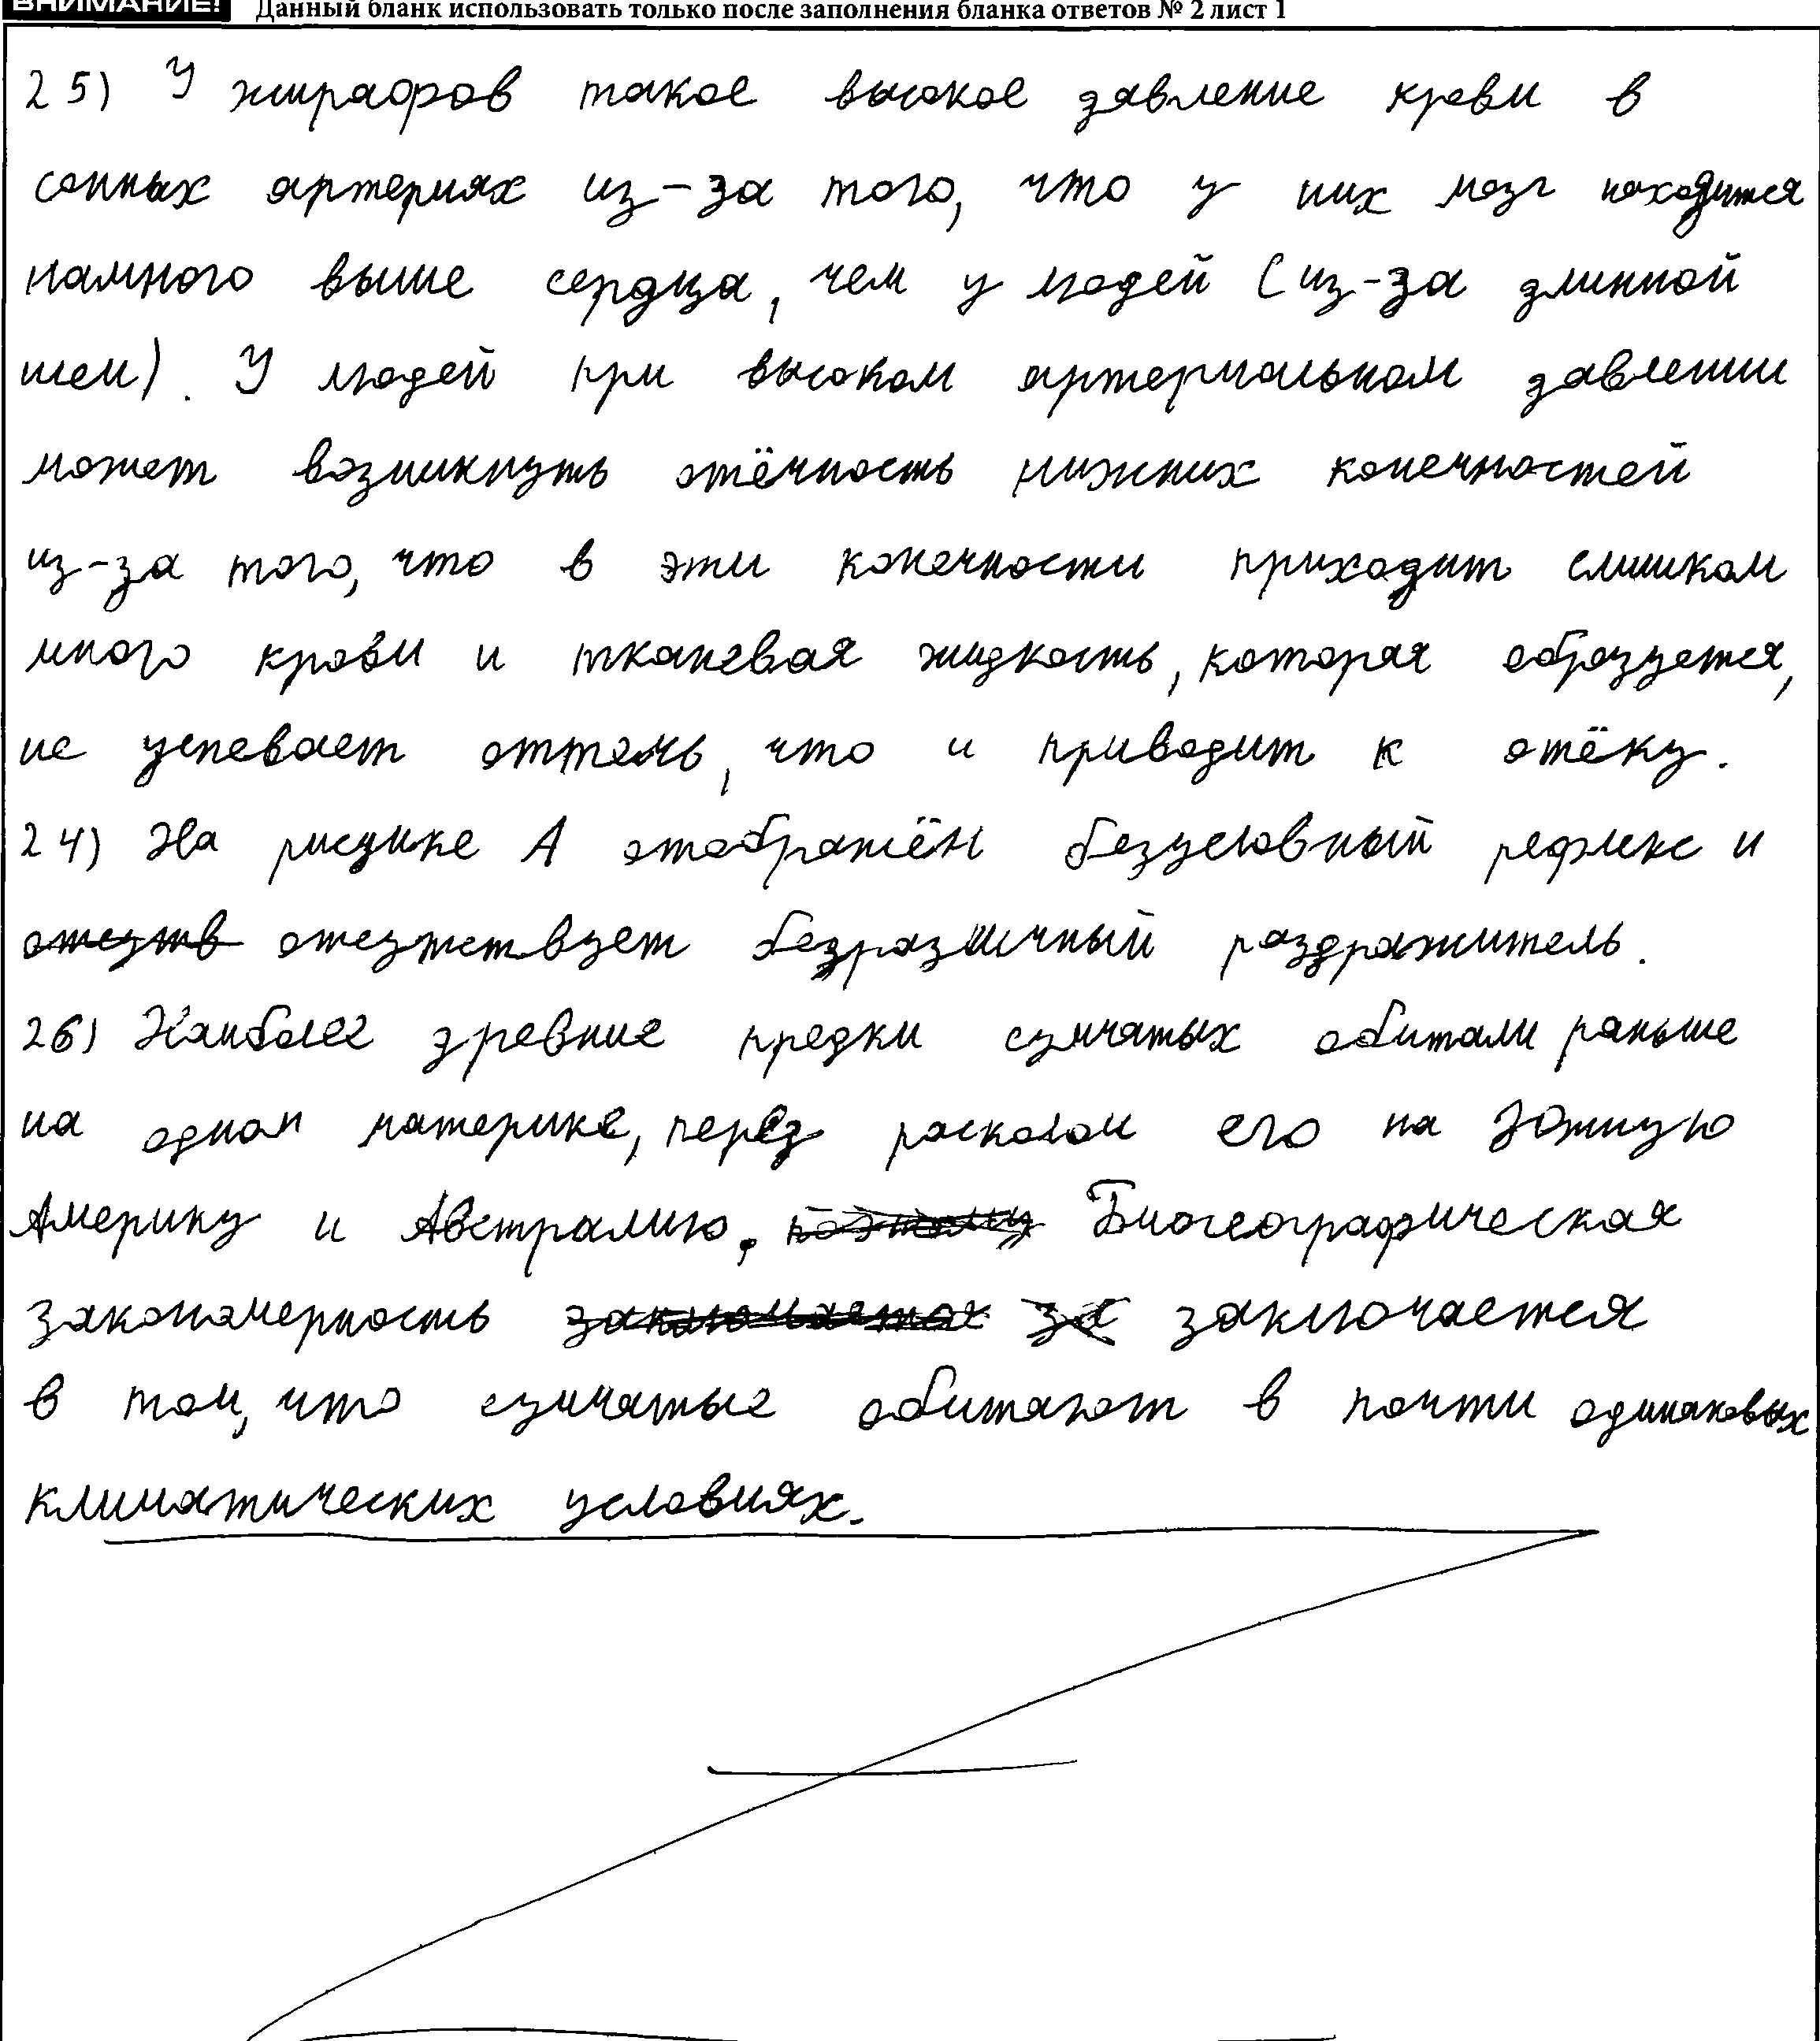 ВНИМАНИЕ! Данный бланк использовать только после заполнения бланка ответов № 2 лист 1
25) У жирафов такое высокое давление крови в
сонных артериях из-за того, что у них мозг находится
намного выше сердца, чем у людей (из-за длинной
шеи). У людей при высоком артериальном давлении
может возникнуть отёчность нижних конечностей
из-за того, что в эти конечности приходит слишком
много крови и тканевая жидкость, которая образуется,
не успевает оттечь, что и приводит к отёку.
24) На рисунке А отображён безусловный рефлекс и
отсутв отсутствует безразличный раздражитель.
26) Наиболее древние предки сумчатых обитали раньше
на одном материке, перед расколом его на Южную
Америку и Австралию. поэтому Биогеографическая
закономерность заключается за заключается
в том, что сумчатые обитают в почти одинаковых
климатических условиях.